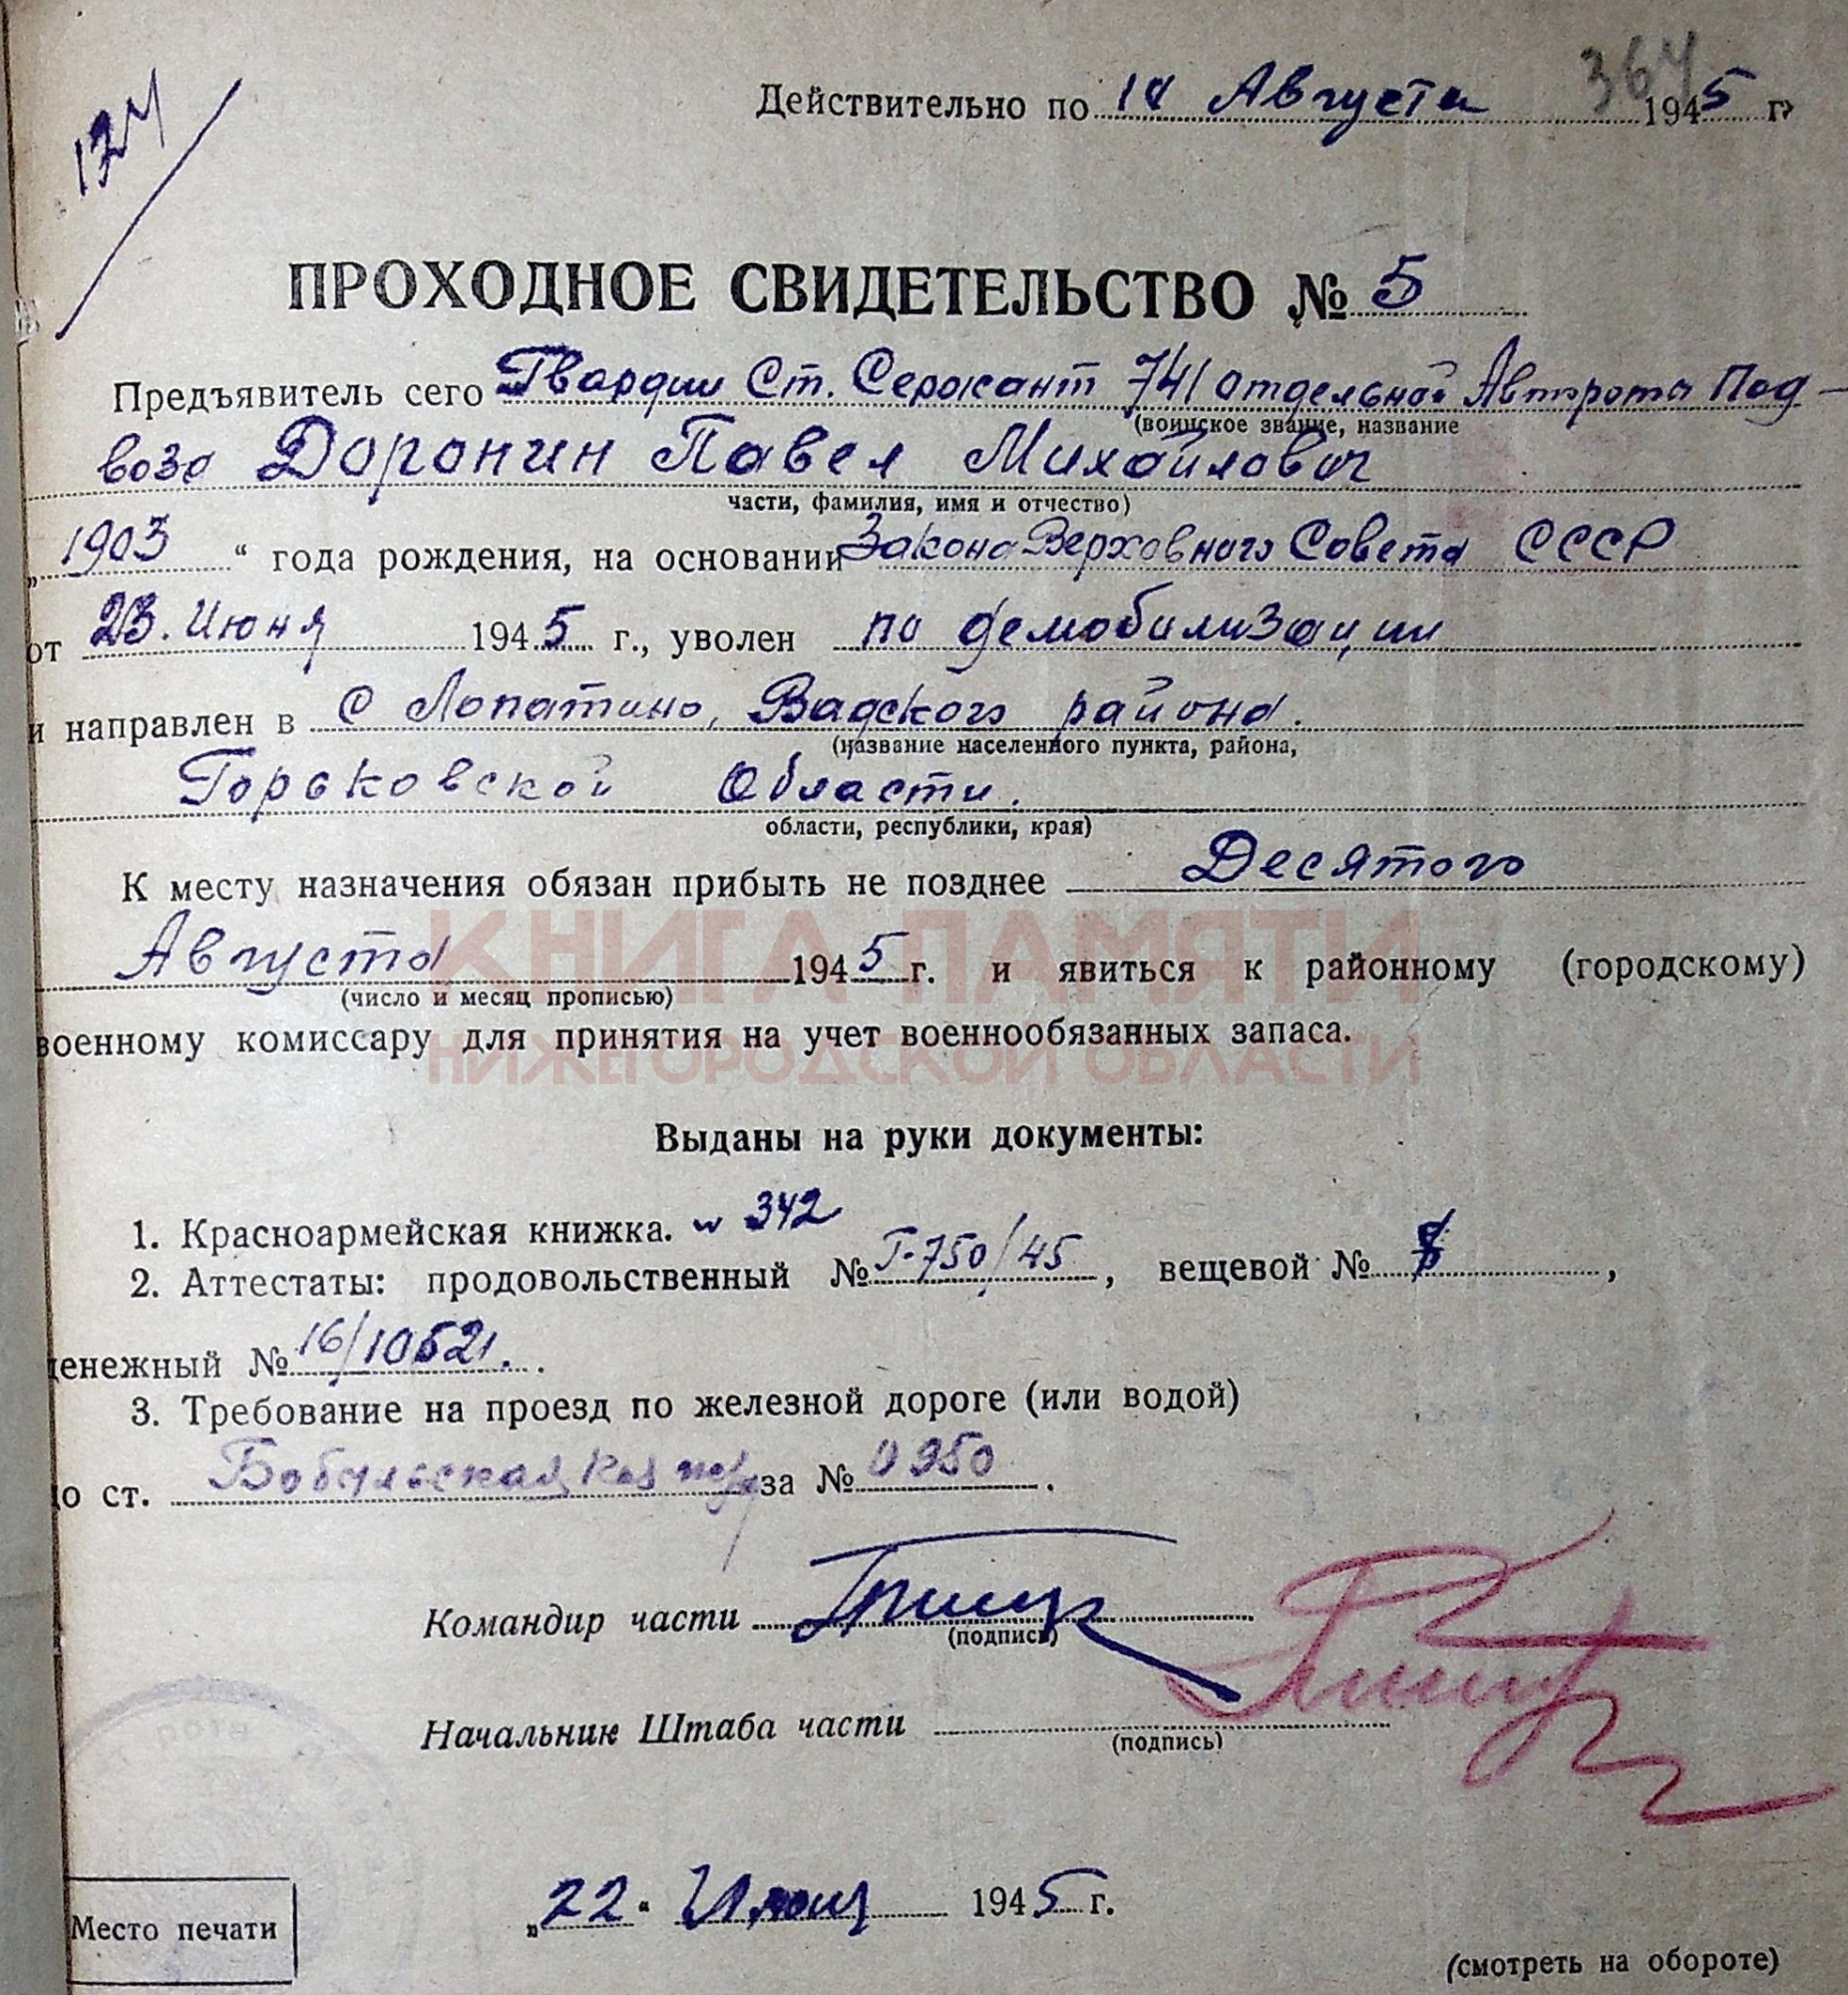 364
124
Действительно по 10 Августа 1945 г.
ПРОХОДНОЕ СВИДЕТЕЛЬСТВО № 5
Предъявитель сего Гвардии Ст. Сержант 741 Отдельной Автороты Под-
(воинское звание, название
воза Доронин Павел Михайлович
части, фамилия, имя и отчество)
„1903“ года рождения, на основании Закона Верховного Совета СССР
от 23. Июня 1945 г., уволен по демобилизации
и направлен в с Лопатино, Вадского района.
(название населенного пункта, района,
Горьковской Области.
области, республики, края)
К месту назначения обязан прибыть не позднее Десятого
Августа 1945 г. и явиться к районному (городскому)
(число и месяц прописью)
военному комиссару для принятия на учет военнообязанных запаса.
КНИГА ПАМЯТИ
НИЖЕГОРОДСКОЙ ОБЛАСТИ
Выданы на руки документы:
1. Красноармейская книжка. № 342
2. Аттестаты: продовольственный № Г-750/45, вещевой №,
денежный № 16/10521.
3. Требование на проезд по железной дороге (или водой)
до ст. Бобыльская Каз за № 0950.
Командир части
(подпись)
Начальник Штаба части
(подпись)
„22“ 1945 г.
Место печати
(смотреть на обороте)